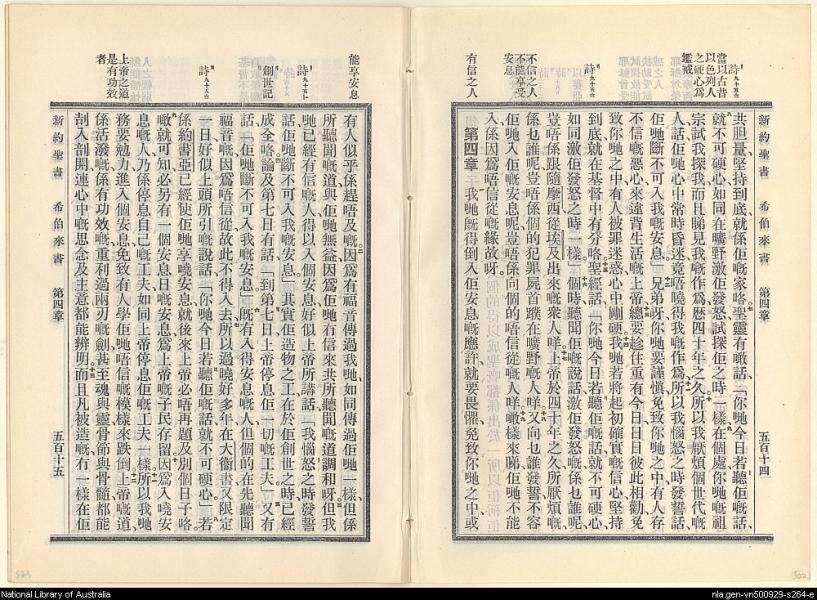 新約聖書　希伯來書　第四章　五百十四
詩九十五
當以古昔
以色列人
之硬心爲
鑑戒
詩九十五
不信之人
不能享受
安息
有信之人
共胆量堅持到底就係佢嘅家咯聖靈有噉話「你哋今日若聽佢嘅話、
就不可硬心如同在曠野激佢發怒試探佢之時一樣在個處你哋嘅祖
宗試我探我而且睇見我嘅作爲歷四十年之久所以我厭煩個世代嘅
人話佢哋心中常時昏迷竟唔曉得我嘅作爲所以我惱怒之時發誓話、
佢哋斷不可入我嘅安息」兄弟呀你哋要謹慎免致你哋之中有人存
不信嘅惡心來違背生活嘅上帝總要趁住重有今日日日彼此相勸免
致你哋之中有人被罪迷惑心中剛硬我哋若將起初確實嘅信心堅持
到底就在基督中有分咯聖經話「你哋今日若聽佢嘅話就不可硬心
如同激佢發怒之時一樣」個時聽聞佢嘅說話激佢發怒嘅係乜誰呢
豈唔係跟隨摩西從埃及出來嘅衆人咩上帝於四十年之久所厭煩嘅
係乜誰呢豈唔係個的犯罪屍首蹼在曠野嘅人咩又向乜誰發誓不容
佢哋入佢嘅安息呢豈唔係向個的唔信從嘅人咩噉樣來睇佢哋不能
入係因爲唔信從嘅緣故呀
第四章　我哋旣得倒入佢安息嘅應許就要畏懼免致你哋之中或
新約聖書　希伯來書　第四章　五百十五
能享安息
詩九十五
創世記
詩九十五
上帝之道
是有功效
者
有人似乎係趕唔及嘅因爲有福音傳過我哋如同傳過佢哋一樣但係
所聽聞嘅道與佢哋無益因爲佢哋冇信來共所聽聞嘅道調和呀但我
哋已經有信嘅人得以入個安息好似上帝所講話「我惱怒之時發誓
話佢哋斷不可入我嘅安息」其實佢造物之工在於佢創世之時已經
成全咯論及第七日有話「到第七日上帝停息佢一切嘅工夫」又有
話「佢哋斷不可入我嘅安息」旣有人得安息嘅人但個的在先聽聞
福音嘅因爲唔信從故此不得入去所以過曉好多年在大衞書又限定
一日好似上頭所引嘅說話「你哋今日若聽佢嘅話就不可硬心」若
係約書亞已經使佢哋享曉安息就後來上帝必唔再題及別個日子咯
噉就可知必另有一個安息日嘅安息爲上帝嘅子民存留因爲入曉安
息嘅人乃係停息自己嘅工夫如同上帝停息佢嘅工夫一樣所以我哋
務要勉力進入個安息免致有人學佢哋唔信嘅模樣來跌倒上帝嘅道
係活潑嘅係有功效嘅重利過兩刃嘅劍甚至魂與靈骨節與骨髓都能
剖入剖開連心中嘅思念及主意都能辨明而且凡被造嘅冇一樣在佢
National Library of Australia
nla.gen-vn500929-s264-e